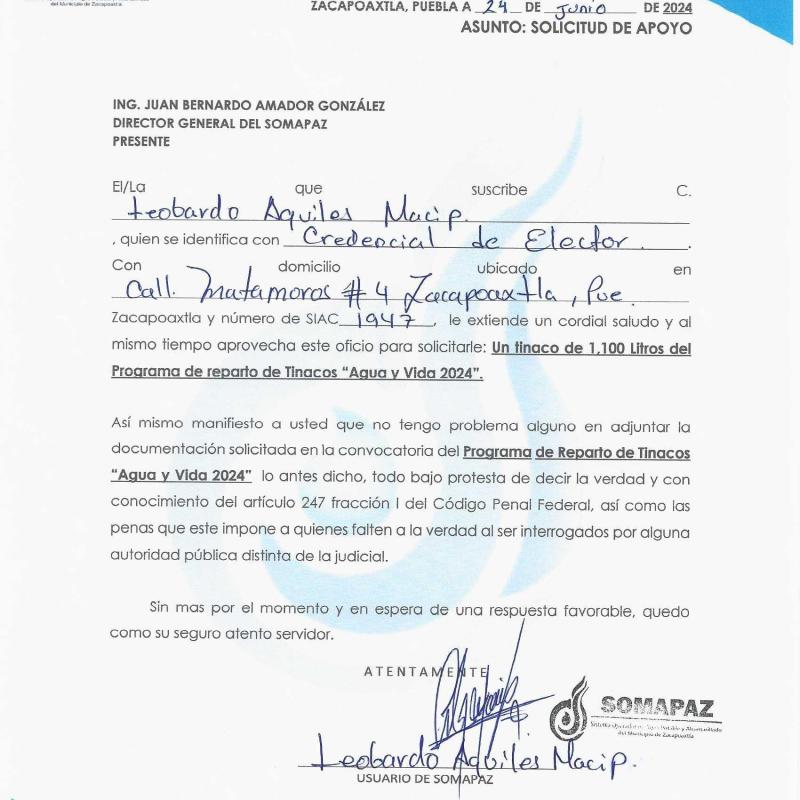 del Municipio de Zacapoaxtla
ZACAPOAXTLA, PUEBLA A 24 DE junio DE 2024
ASUNTO: SOLICITUD DE APOYO
ING. JUAN BERNARDO AMADOR GONZÁLEZ
DIRECTOR GENERAL DEL SOMAPAZ
PRESENTE
El/La que suscribe C.
Leobardo Aquiles Macip.
, quien se identifica con Credencial de Elector.
Con domicilio ubicado en
Call. Matamoros # 4 Zacapoaxtla, Pue.
Zacapoaxtla y número de SIAC 1947, le extiende un cordial saludo y al
mismo tiempo aprovecha este oficio para solicitarle: Un tinaco de 1,100 Litros del
Programa de reparto de Tinacos “Agua y Vida 2024”.
Así mismo manifiesto a usted que no tengo problema alguno en adjuntar la
documentación solicitada en la convocatoria del Programa de Reparto de Tinacos
“Agua y Vida 2024” lo antes dicho, todo bajo protesta de decir la verdad y con
conocimiento del artículo 247 fracción I del Código Penal Federal, así como las
penas que este impone a quienes falten a la verdad al ser interrogados por alguna
autoridad pública distinta de la judicial.
Sin mas por el momento y en espera de una respuesta favorable, quedo
como su seguro atento servidor.
ATENTAMENTE
SOMAPAZ
Sistema Operador de Agua Potable y Alcantarillado
del Municipio de Zacapoaxtla
Leobardo Aquiles Macip.
USUARIO DE SOMAPAZ